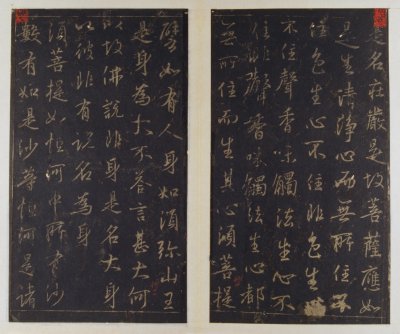 名莊嚴是故菩薩應如
是生清淨心而無所住不
住色生心不住非色生
不住聲香味觸法生心不
住非聲香味觸法生心都
無所住而生其心須菩提
譬如有人身如須彌山王
是身為大不答言甚大何
以故佛說非身是名大身
以彼非有說名為身
須菩提如恒河中所有沙
數有如是沙等恒河是諸